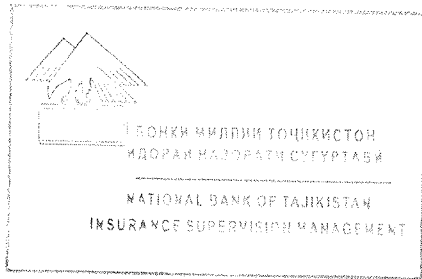 БОНКИ МИЛЛИИ ТОҶИКИСТОН
ИДОРАИ НАЗОРАТИ СУҒУРТАВӢ
NATIONAL BANK OF TAJIKISTAN
INSURANCE SUPERVISION MANAGEMENT